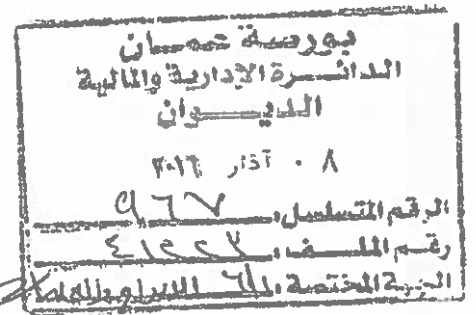 بورصة عمان
الدائرة الإدارية والمالية
الديوان
٠٨ آذار ٢٠١٦
الرقم المتسلسل: ٩٦٧
رقم الملف: ٤١٢٢٧
الجهة المختصة: الإدراج